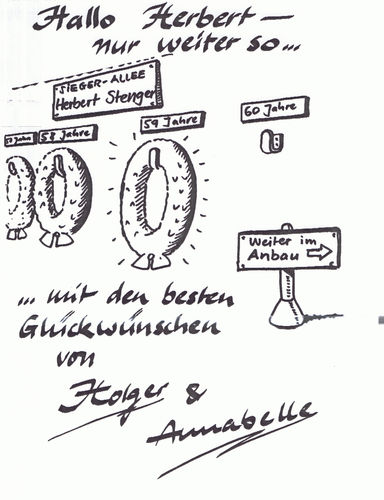 Hallo Herbert –
nur weiter so...
SIEGER-ALLEE
Herbert Stenger
58 Jahre
59 Jahre
60 Jahre
Weiter im
Anbau
... mit den besten
Glückwünschen
von
Holger &
Annabelle